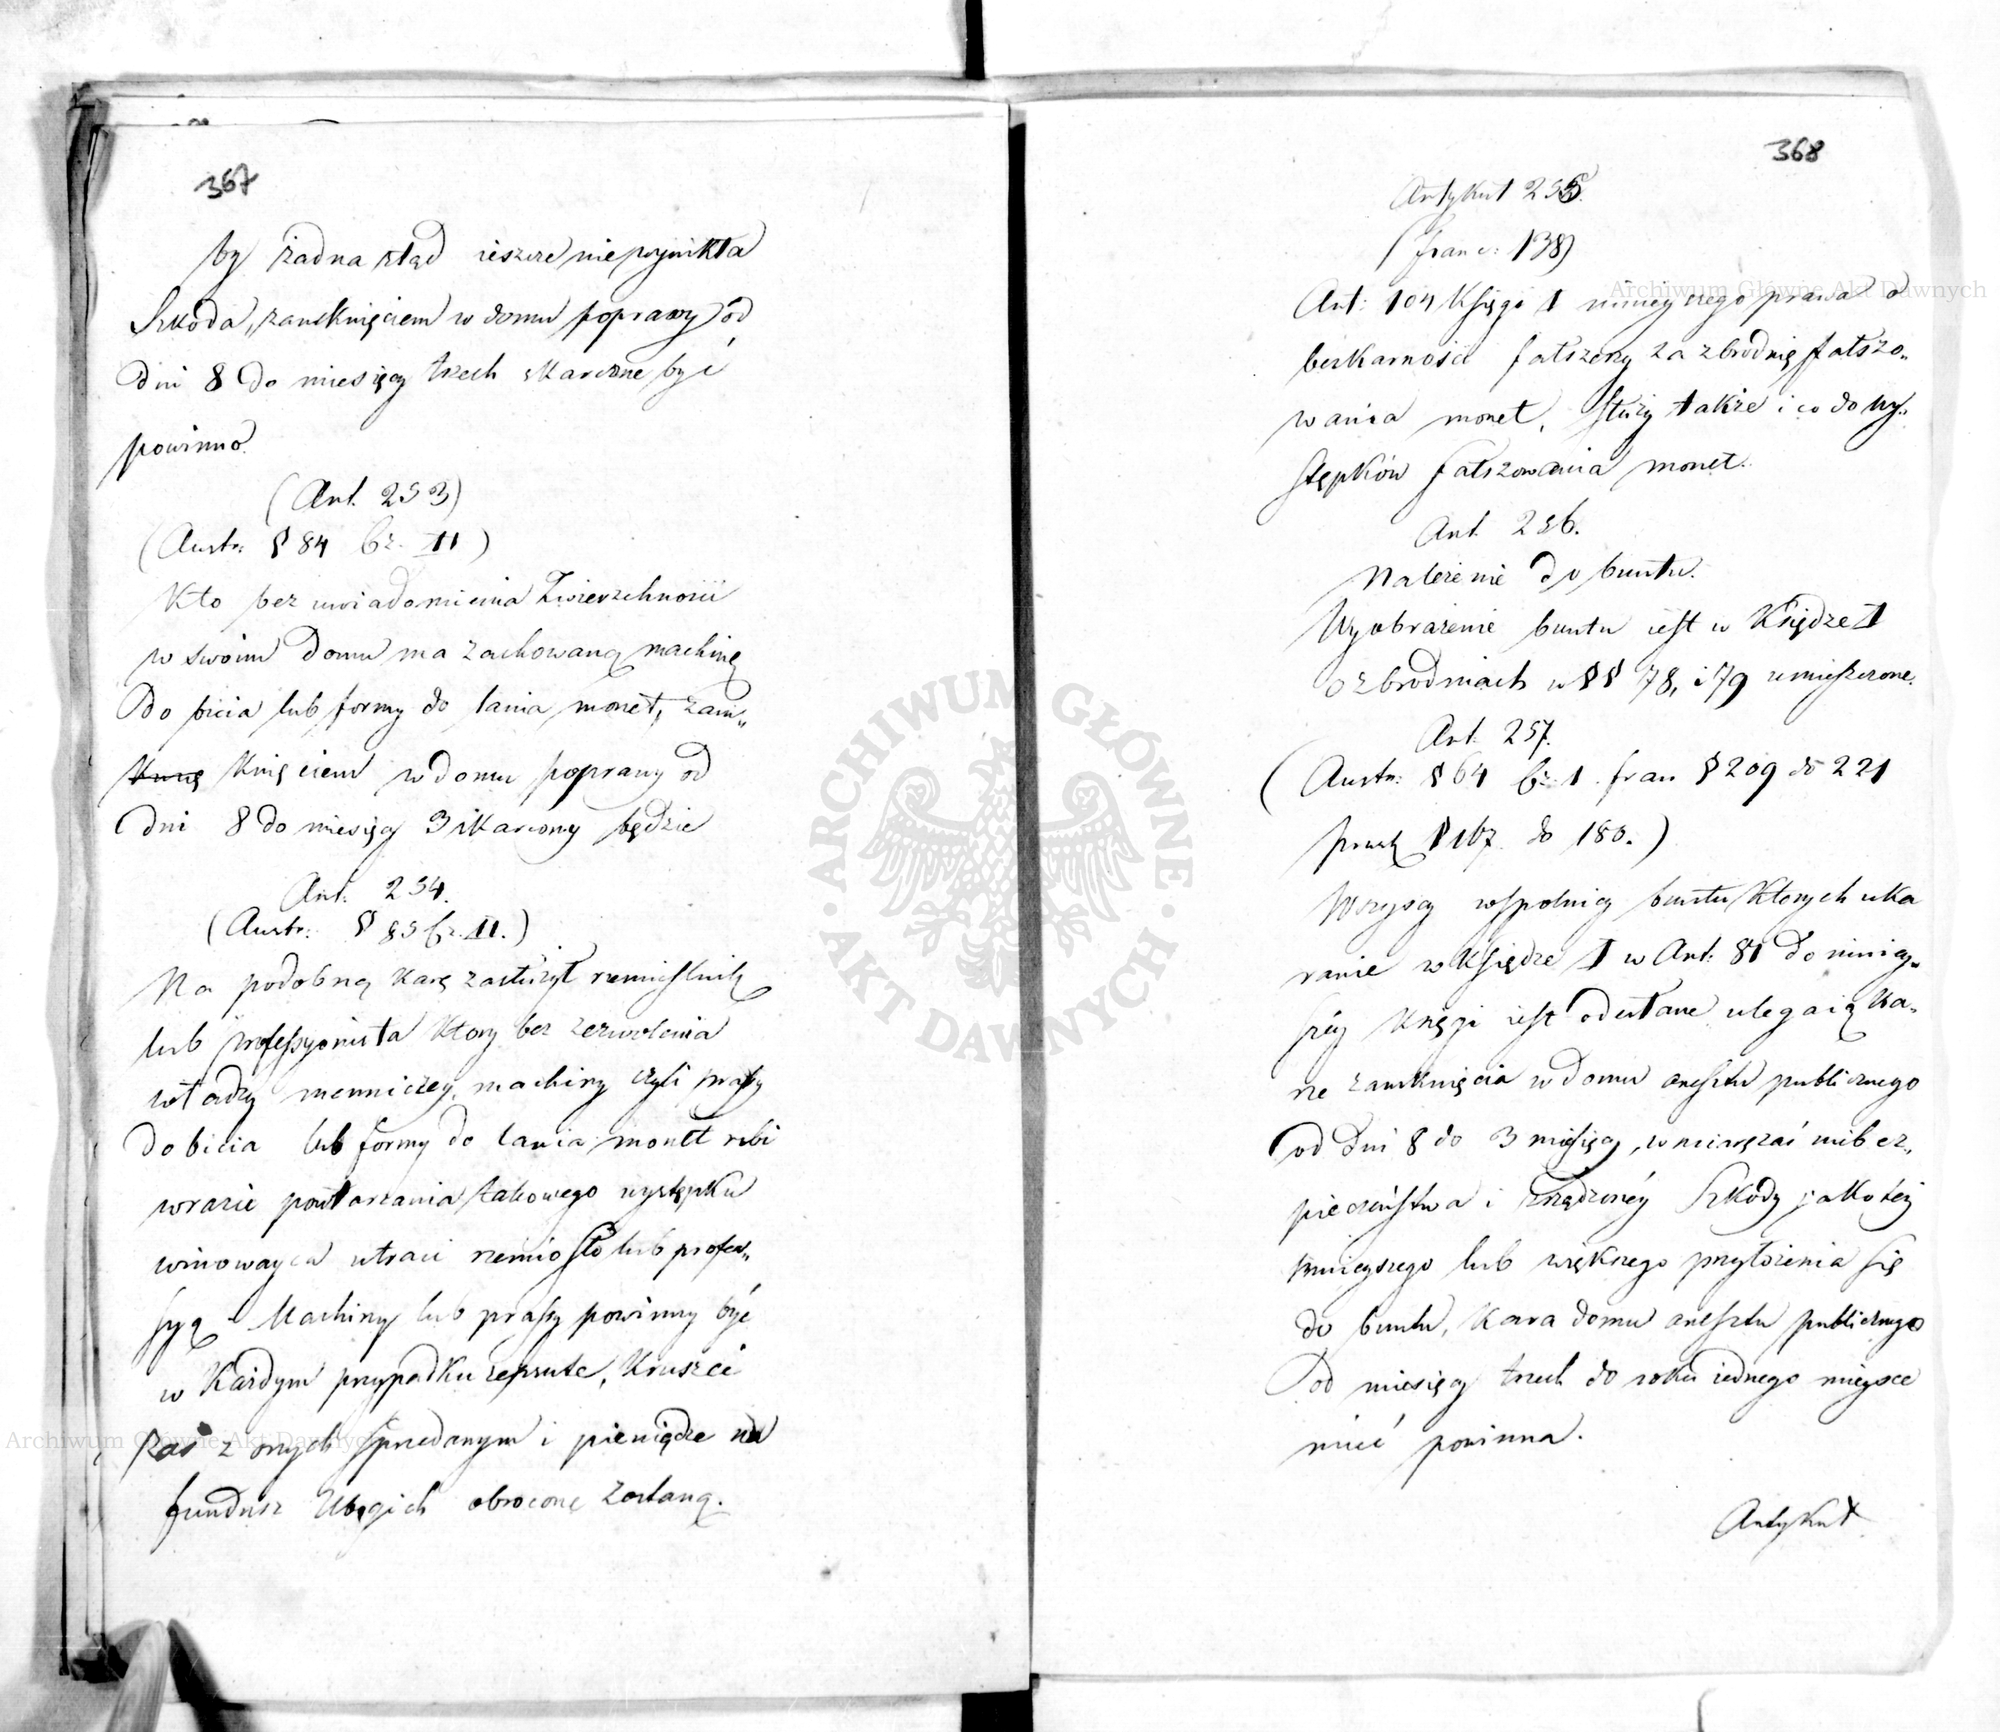 367
by żadna ztąd ieszcze nie wynikła
Szkoda, zamknięciem w domu poprawy od
dni 8 do miesięcy trzech skarczone być
powinno.
(Art. 253)
(Austr: § 84 Cz. II)
Kto bez uwiadomienia Zwierzchności
w swoim domu ma zachowaną machinę
do bicia lub formy do lania monet, zam„
knięciem w domu poprawy od
dni 8 do miesięcy 3 skarcony będzie
Art: 254.
(Austr: § 85 Cz. II.)
Na podobną karę zasłużył rzemieślnik
lub professyonista który bez zezwolenia
władzy menniczey, machiny czyli prassy
do bicia lub formy do lania monet robi
wrazie powtarzania takowego występku
winowayca utraci rzemiosło lub profes„
syą. Machiny lub prassy powinny być
w każdym przypadku zepsute, kruszce
zaś z onych sprzedanym i pieniądze na
fundusz Ubogich obrócone zostaną.
368
Artykuł 255.
(franc: 138)
Art: 104 Księgi I ninieyszego prawa o
bezkarności fałszerzy za zbrodnię fałszo„
wania monet, służy także i co do wy„
stępków fałszowania monet.
Art 256.
Należenie do buntu.
Wyobrażenie buntu iest w Księdze I
o zbrodniach w §§ 78, i 79 umieszczone.
Art: 257.
(Austr: § 64 Cz. I. fran § 209 do 221
prusk § 167. do 180.)
Wszyscy wspólnicy buntu których uka
ranie w Księdze I w Art: 81 do niniey„
széy Księgi iest odesłane ulegaią ka„
rze zamknięcia w domu aresztu publicznego
od dni 8 do 3 miesięcy, w miarę zaś niebez„
pieczeństwa i zrządzonéy Szkody jakoteż
mnieyszego lub większego przyłożenia się
do buntu, kara domu aresztu publicznego
od miesięcy trzech do roku iednego mieysce
mieć powinna.
Artykuł
Archiwum Główne Akt Dawnych
Archiwum Główne Akt Dawnych
ARCHIWUM GŁÓWNE
AKT DAWNYCH